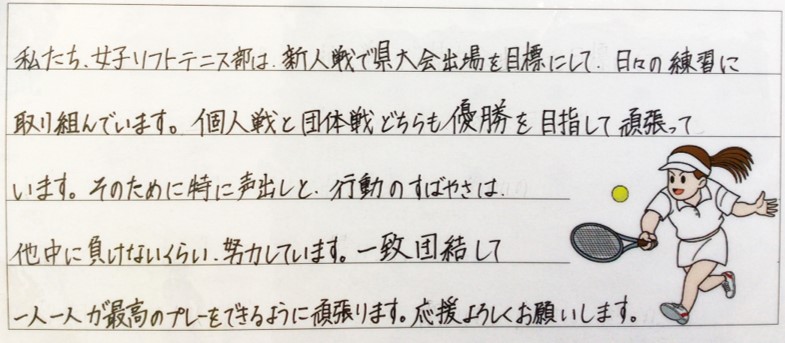 私たち、女子ソフトテニス部は、新人戦で県大会出場を目標にして、日々の練習に
取り組んでいます。個人戦と団体戦どちらも優勝を目指して頑張って
います。そのために特に声出しと、行動のすばやさは、
他中に負けないくらい、努力しています。一致団結して
一人一人が最高のプレーをできるように頑張ります。応援よろしくお願いします。